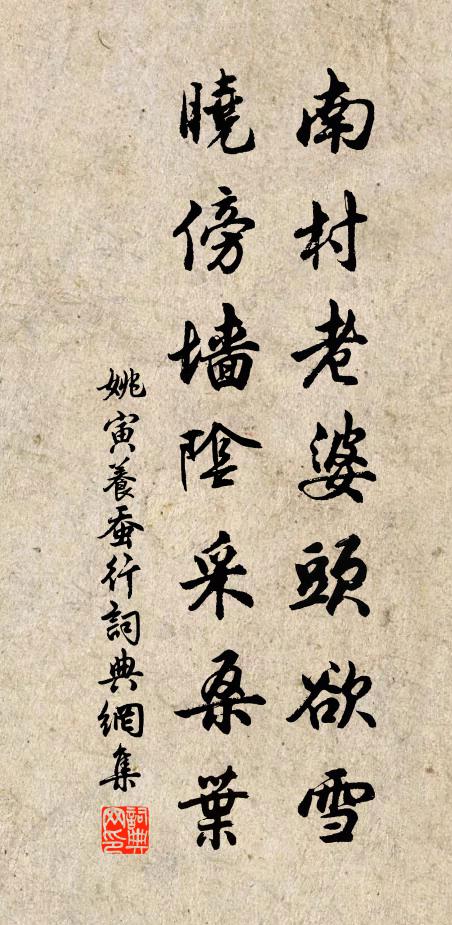 南村老婆頭欲雪
曉傍墻陰采桑葉
姚寅養蚕行詞典網集
詞典网印